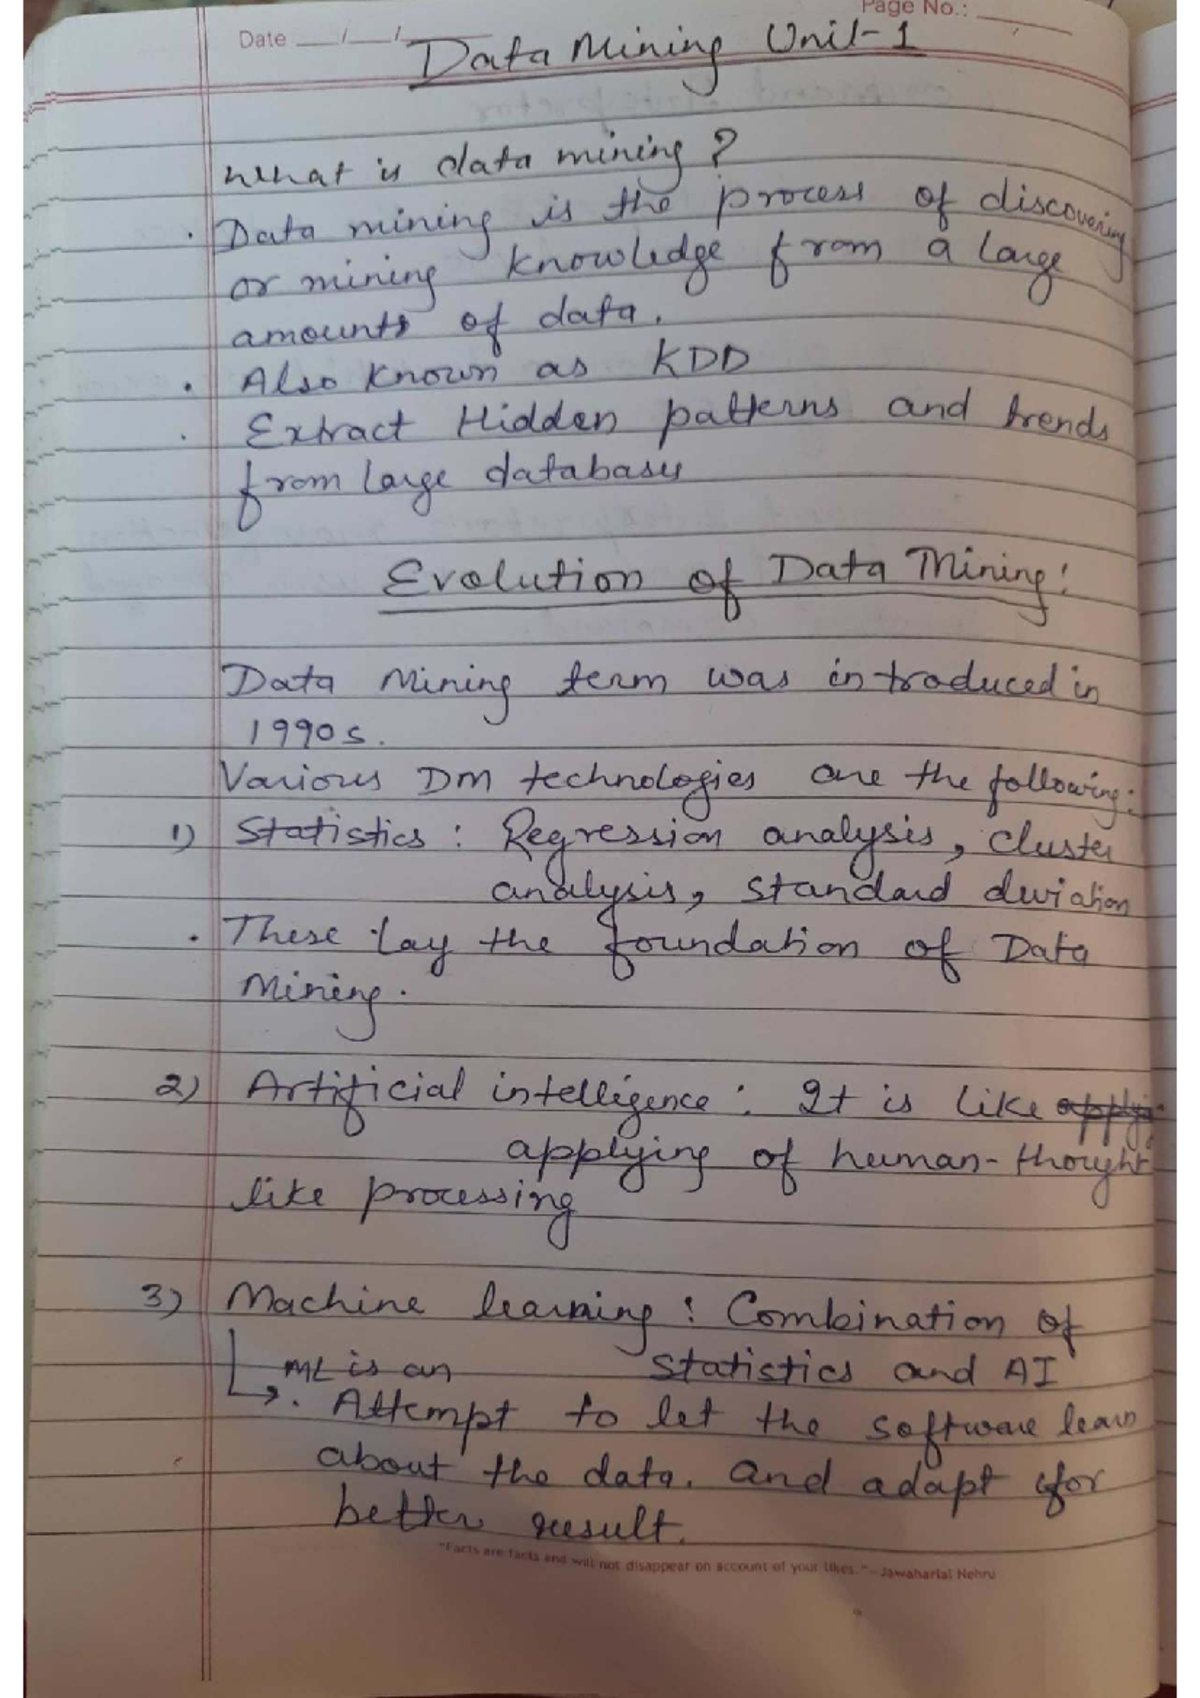 Page No.:
Date / /
Data Mining Unit-1
What is data mining ?
. Data mining is the process of discovering
or mining knowledge from a large
amounts of data.
. Also known as KDD
. Extract Hidden patterns and trends
from large databases
Evolution of Data Mining:
Data Mining term was introduced in
1990s.
Various DM technologies are the following:
1) Statistics : Regression analysis, cluster
analysis, standard deviation
. These lay the foundation of Data
Mining.
2) Artificial intelligence : It is like applying
applying of human-thought
like processing
3) Machine learning : Combination of
ML is an statistics and AI
. Attempt to let the software learn
about the data. and adapt for
better result.
"Facts are facts and will not disappear on account of your likes." - Jawaharlal Nehru